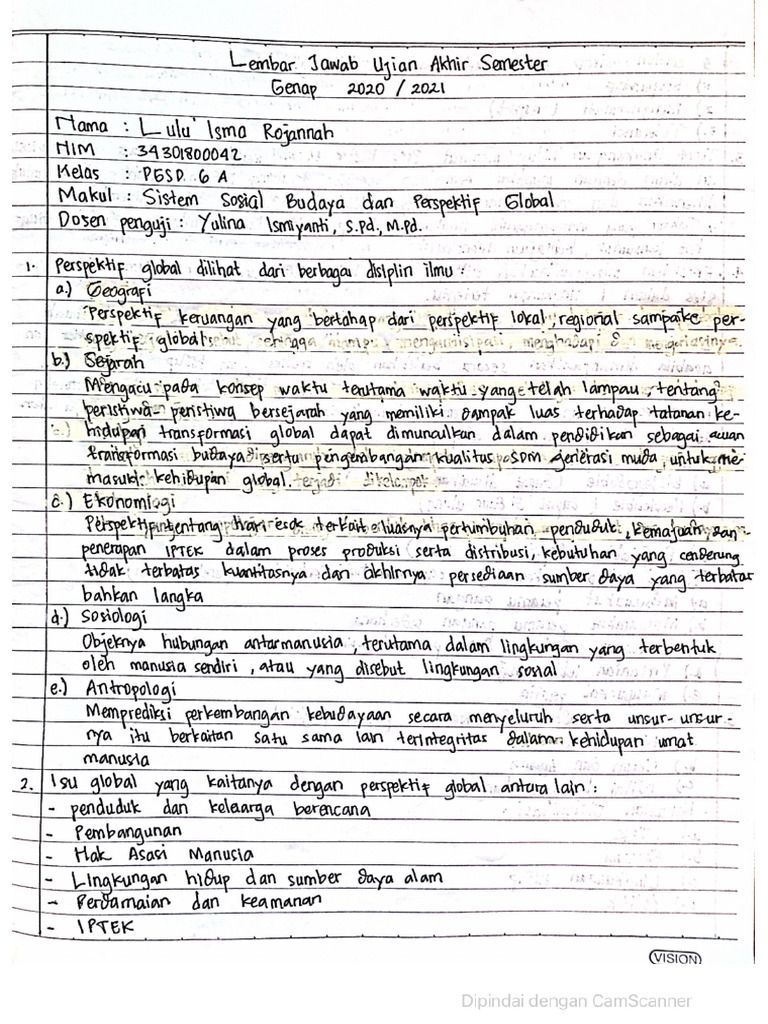 Lembar Jawab Ujian Akhir Semester
Genap 2020 / 2021
Nama : Lulu' Isma Rojannah
NIM : 34301800042
Kelas : PGSD 6 A
Makul : Sistem Sosial Budaya dan Perspektif Global
Dosen penguji : Yulina Ismiyanti, S.Pd., M.Pd.
1. Perspektif global dilihat dari berbagai disiplin ilmu :
a.) Geografi
Perspektif keruangan yang bertahap dari perspektif lokal, regional sampai ke per-
spektif global
b.) Sejarah
Mengacu pada konsep waktu terutama waktu yang telah lampau, tentang
peristiwa - peristiwa bersejarah yang memiliki dampak luas terhadap tatanan ke-
hidupan transformasi global dapat dimunculkan dalam pendidikan sebagai acuan
transformasi budaya serta pengembangan kualitas SDM generasi muda, untuk me
masuki kehidupan global.
c.) Ekonomi
Perspektif tentang hari esok terkait luasnya pertumbuhan penduduk, kemajuan, dan
penerapan IPTEK dalam proses produksi serta distribusi, kebutuhan yang cenderung
tidak terbatas kuantitasnya dan akhirnya persediaan sumber daya yang terbatas
bahkan langka
d.) Sosiologi
Objeknya hubungan antarmanusia, terutama dalam lingkungan yang terbentuk
oleh manusia sendiri, atau yang disebut lingkungan sosial
e.) Antropologi
Memprediksi perkembangan kebudayaan secara menyeluruh serta unsur-unsur-
nya itu berkaitan satu sama lain terintegritas dalam kehidupan umat
manusia
2. Isu global yang kaitanya dengan perspektif global antara lain :
- penduduk dan keluarga berencana
- Pembangunan
- Hak Asasi Manusia
- Lingkungan hidup dan sumber daya alam
- Perdamaian dan keamanan
- IPTEK
VISION
Dipindai dengan CamScanner